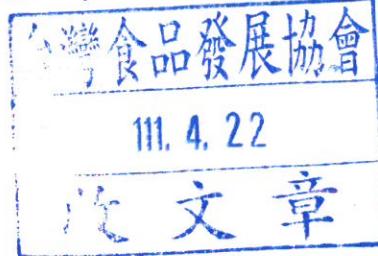 台灣食品發展協會
111. 4. 22
收文章